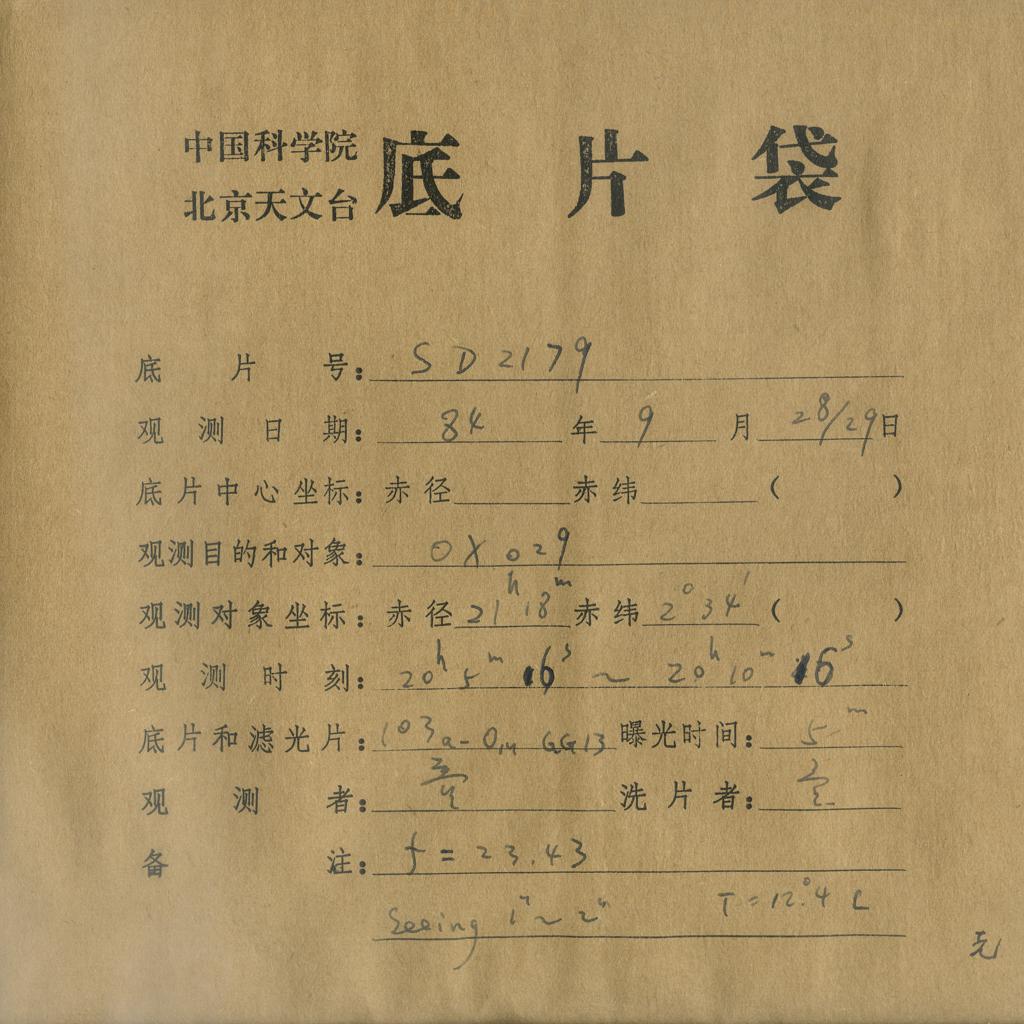 中国科学院
北京天文台
底片袋
底片号：SD2179
观测日期：84年9月28/29日
底片中心坐标：赤径 赤纬 （ ）
观测目的和对象：OX 029
观测对象坐标：赤径21h18m赤纬2°34′（ ）
观测时刻：20h5m16s～20h10m16s
底片和滤光片：103a-O, GG13 曝光时间：5m
观测者： 洗片者：
备注：f=23.43
Seeing 1"～2" T=12°.4 C